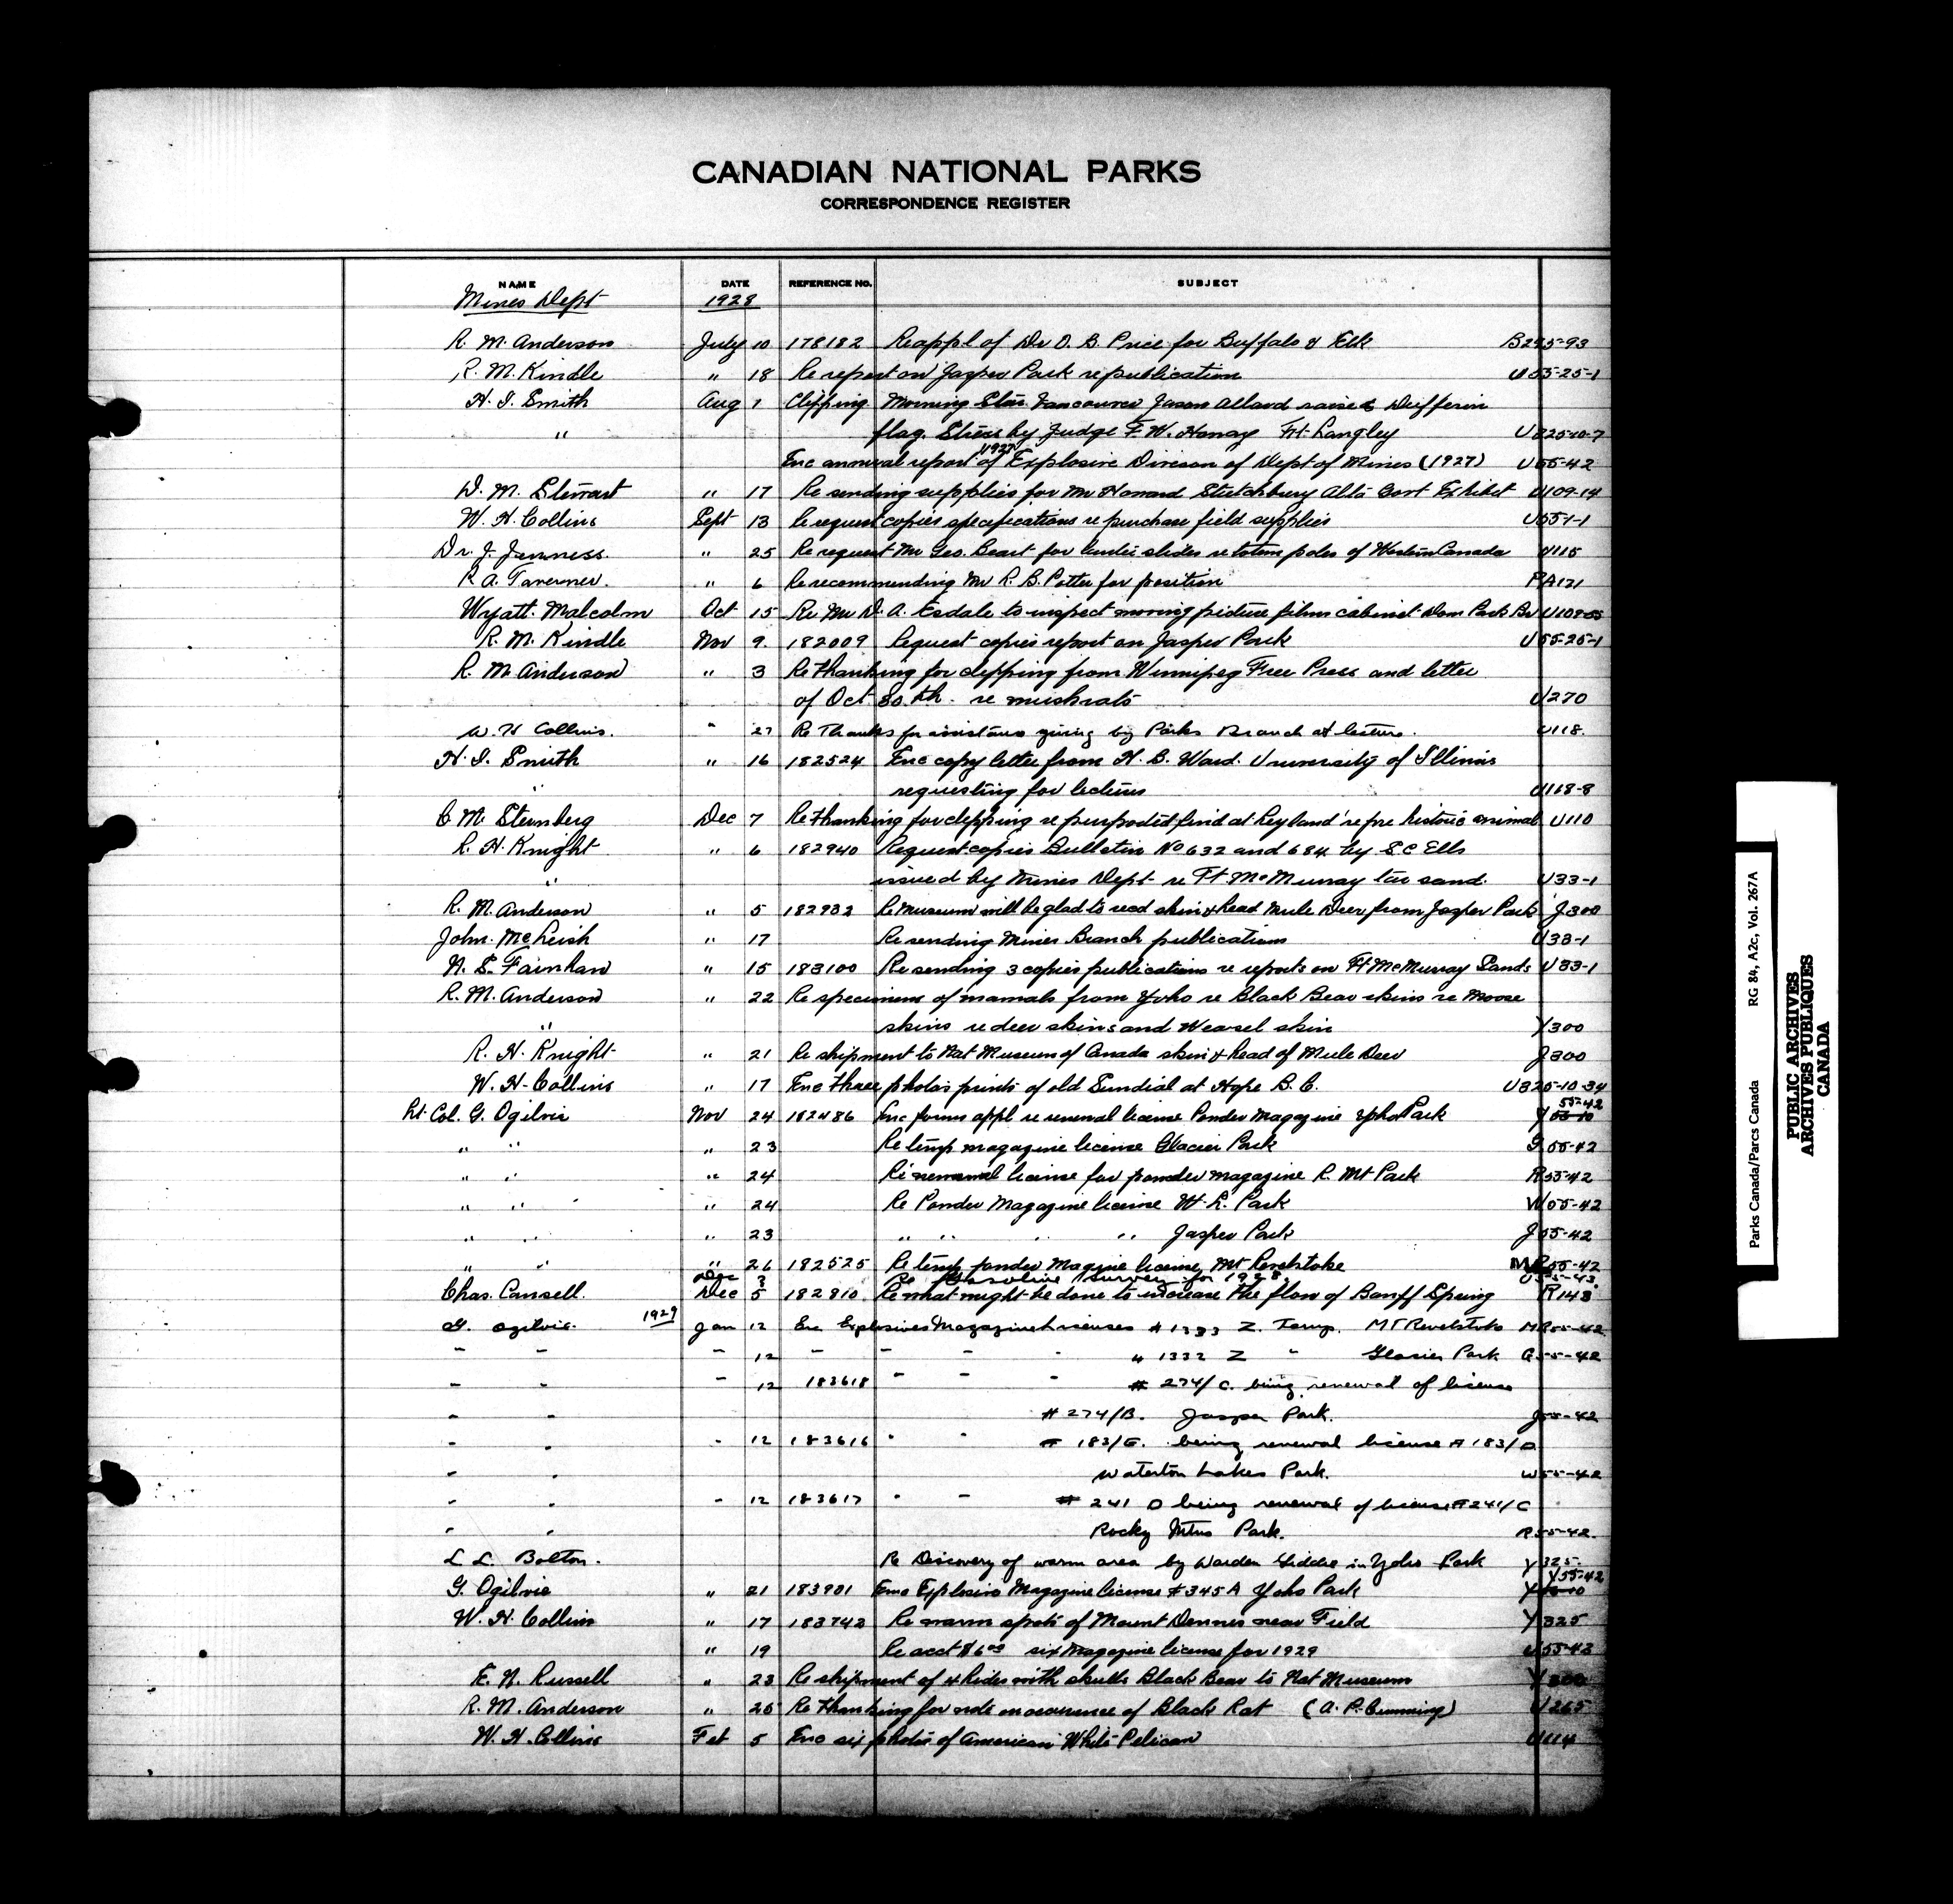 CANADIAN NATIONAL PARKS
CORRESPONDENCE REGISTER
NAME DATE REFERENCE NO. SUBJECT
Mines Dept 1928
R. M. Anderson July 10 178182 Re appl of Dr O. B. Price for Buffalo & Elk B295-93
R. M. Kindle " 18 Re report on Jasper Park republication U55-25-1
H. I. Smith Aug 1 Clipping Morning Star Vancouver Jason Allard raises Dufferin
" flag. by Judge F. W. Howay Ft. Langley U325-10-7
Enc annual report 1927 of Explosive Division of Dept of Mines (1927) U55-42
D. M. Stewart " 17 Re sending supplies for Mr Howard Stutchbury Alta Govt Exhibit U109-14
W. H. Collins Sept 13 Re request copies specifications re purchase field supplies U55-1-1
Dr. J. Jenness " 25 Re request Mr Geo. Beart for lantern slides re totem poles of Western Canada U115
P. A. Taverner. " 6 Re recommending Mr R. B. Potter for position PA121
Wyatt. Malcolm Oct 15 Re Mr D. A. Esdale to inspect moving picture films cabinet Dom Park Br U109-55
R. M. Kindle Nov 9. 182009 Request copies report on Jasper Park U55-25-1
R. M. Anderson " 3 Re thanking for clipping from Winnipeg Free Press and letter
of Oct 30th. re muskrats U270
W. H Collins. " 27 Re Thanks for assistance giving by Parks Branch at lecture. U118.
H. I. Smith " 16 182524 Enc copy letter from H. B. Ward. University of Illinois
" requesting for lectures U118-8
C M. Sternberg Dec 7 Re thanking for clipping re purported find at Leyland re pre historic animal U110
R. H. Knight " 6 182940 Request copies Bulletin No 632 and 684 by S C Ells
" issued by Mines Dept re Ft McMurray tar sand. U33-1
R. M. Anderson " 5 182932 Re Museum will be glad to recd skin & head Mule Deer from Jasper Park J300
John. McLeish " 17 Re sending Mines Branch publications U33-1
" 15 183100 Re sending 3 copies publications re reports on Ft McMurray Sands U33-1
R. M. Anderson " 22 Re specimens of mamals from Yoho re Black Bear skins re Moose
" skins re deer skins and Weasel skin Y300
R. H. Knight " 21 Re shipment to Nat Museum of Canada skin & head of Mule Deer J300
W. H. Collins " 17 Enc three photos prints of old Sundial at Hope B. C. U325-10-34
Lt. Col. G. Ogilvie Nov 24 182486 Enc forms appl re renewal license Powder Magazine Yoho Park Y 55-42
" " " 23 Re temp magazine license Glacier Park G55-42
" " " 24 Re renewal license for powder magazine R. Mt Park R55-42
" " " 24 Re Powder Magazine license W. L. Park W55-42
" " " 23 " " " " Jasper Park J55-42
" " " 26 182525 Re temp powder Magzine license Mt Revelstoke MR55-42
Dec 3 Re Gasoline survey for 1928. U55-43
Chas. Camsell. Dec 5 182810 Re what might be done to increase the flow of Banff Spring R143
G. Ogilvie. 1929 Jan 12 Enc Explosives Magazine Licenses # 1333 Z. Temp. MT Revelstoke MR55-42
" " " 12 " " " " # 1332 Z " Glacier Park G55-42
" " " 12 183618 " " " # 274/C. being renewal of license
" " # 274/B. Jasper Park. J55-42
" " " 12 183616 " " # 183/E. being renewal license # 183/D
" " Waterton Lakes Park. W55-42
" " " 12 183617 " " # 241 D being renewal of license # 241/C
" " Rocky Mtns Park. R55-42.
L L. Bolton. Re Discovery of warm area by Warden Giddie in Yoho Park Y325.
G. Ogilvie " 21 183901 Enc Explosive Magazine license # 345A Yoho Park Y55-42
W. H. Collins " 17 183742 Re warm spots of Mount Dennis near Field Y325
" 19 Re acct $6.00 six Magazine license for 1929 U55-42
E. N. Russell " 23 Re shipment of 4 hides with skulls Black Bear to Nat Museum Y300
R. M. Anderson " 25 Re thanking for note on occurence of Black Rat (A. P. Cumming) U265
W. H. Collins Feb 5 Enc six photos of American White Pelican U114
Parks Canada/Parcs Canada RG 84, A2c, Vol. 267A
PUBLIC ARCHIVES
ARCHIVES PUBLIQUES
CANADA